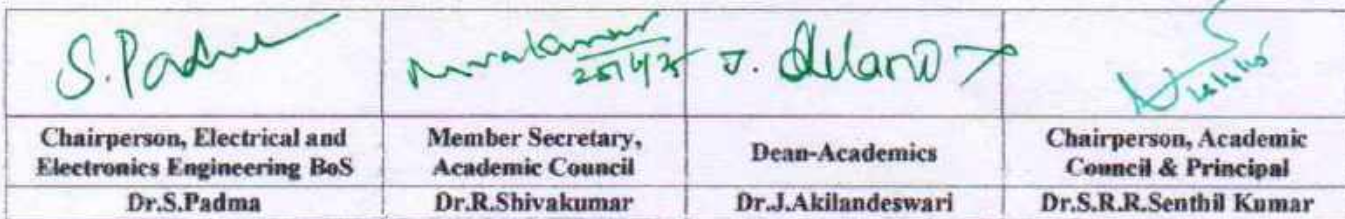 S. Padma
25/4/25 J.
Chairperson, Electrical and Electronics Engineering BoS
Member Secretary, Academic Council
Dean-Academics
Chairperson, Academic Council & Principal
Dr.S.Padma
Dr.R.Shivakumar
Dr.J.Akilandeswari
Dr.S.R.R.Senthil Kumar